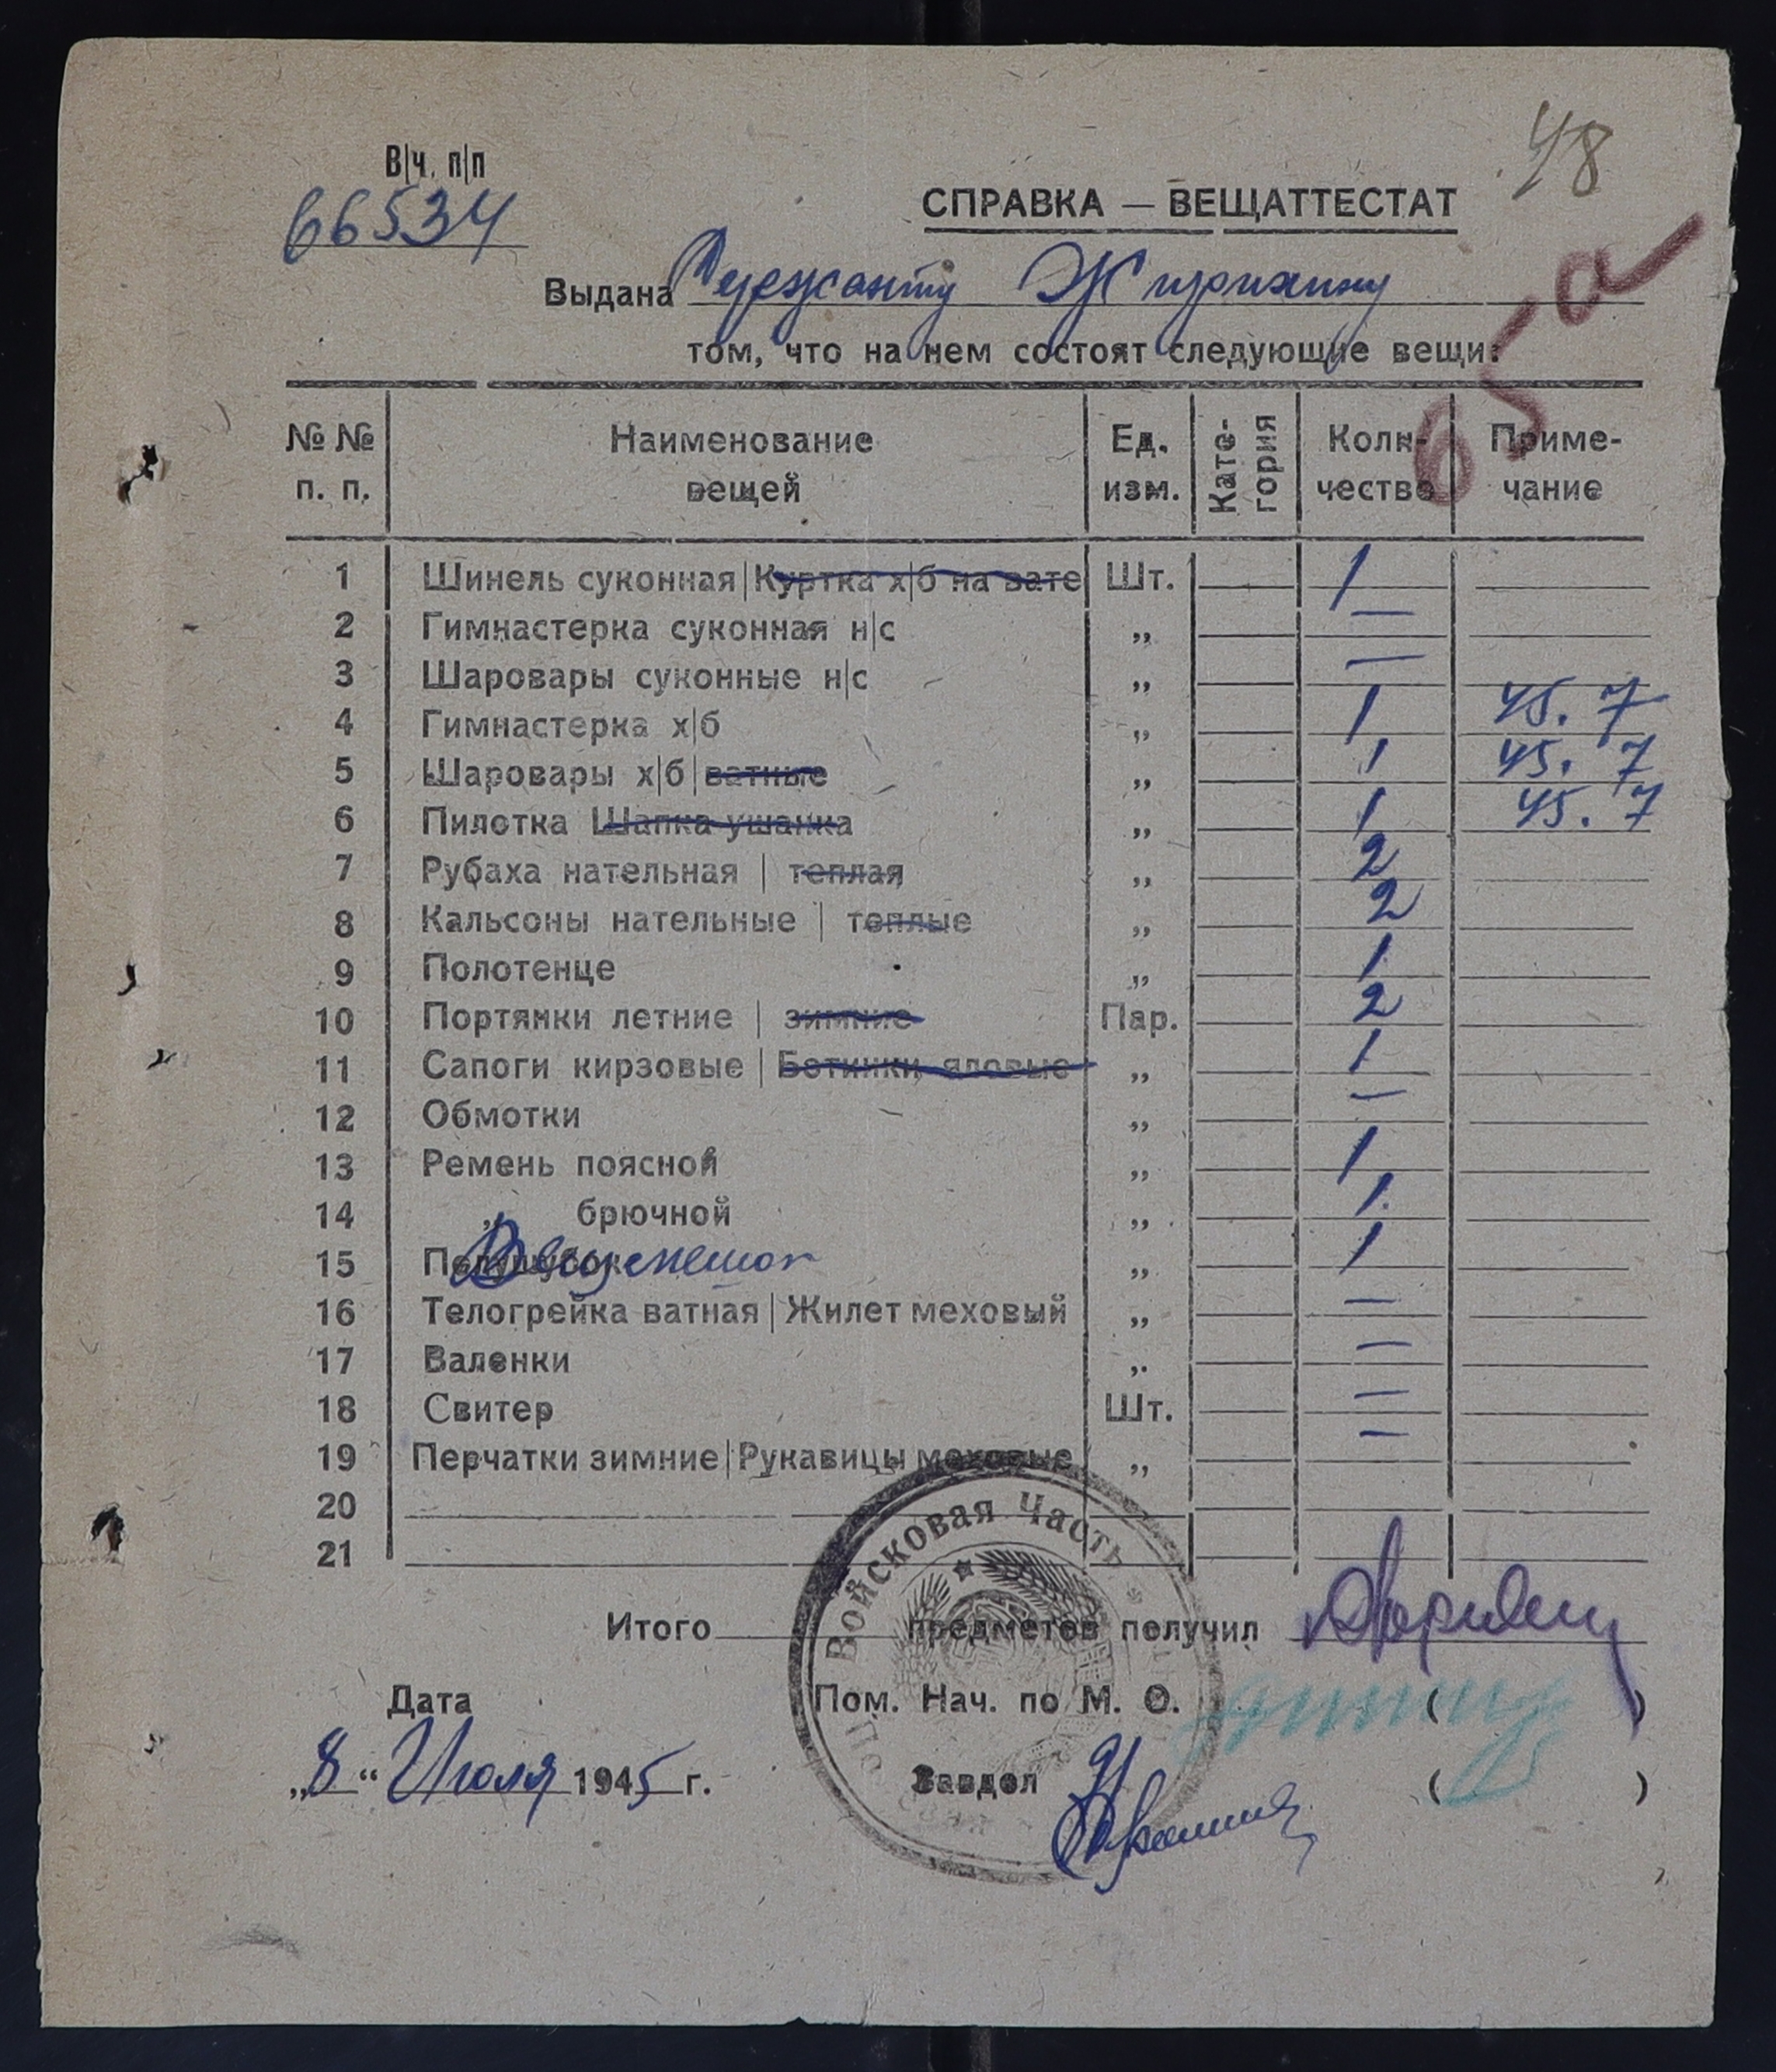 48
В|ч. п|п
66534
СПРАВКА — ВЕЩАТТЕСТАТ
65а
Выдана Сержанту
том, что на нем состоят следующие вещи:
№ № п. п. Наименование вещей Ед. изм. Кате-гория Коли-чество Приме-чание
1 Шинель суконная|Куртка х|б на вате Шт. 1
2 Гимнастерка суконная н|с „ —
3 Шаровары суконные н|с „ —
4 Гимнастерка х|б „ 1 45. 7
5 Шаровары х|б|ватные „ 1 45. 7
6 Пилотка Шапка-ушанка „ 1 45. 7
7 Рубаха нательная | теплая „ 2
8 Кальсоны нательные | теплые „ 2
9 Полотенце „ 1
10 Портянки летние | зимние Пар. 2
11 Сапоги кирзовые | Ботинки яловые „ 1
12 Обмотки „ —
13 Ремень поясной „ 1
14 „ брючной „ 1
15 Полушубок Вещмешок „ 1
16 Телогрейка ватная|Жилет меховый „ —
17 Валенки „ —
18 Свитер Шт. —
19 Перчатки зимние|Рукавицы меховые „ —
20
21
Итого предметов получил
Дата Пом. Нач. по М. О. ( )
„8“ Июля 1945 г. Завдел ( )
Войсковая Часть